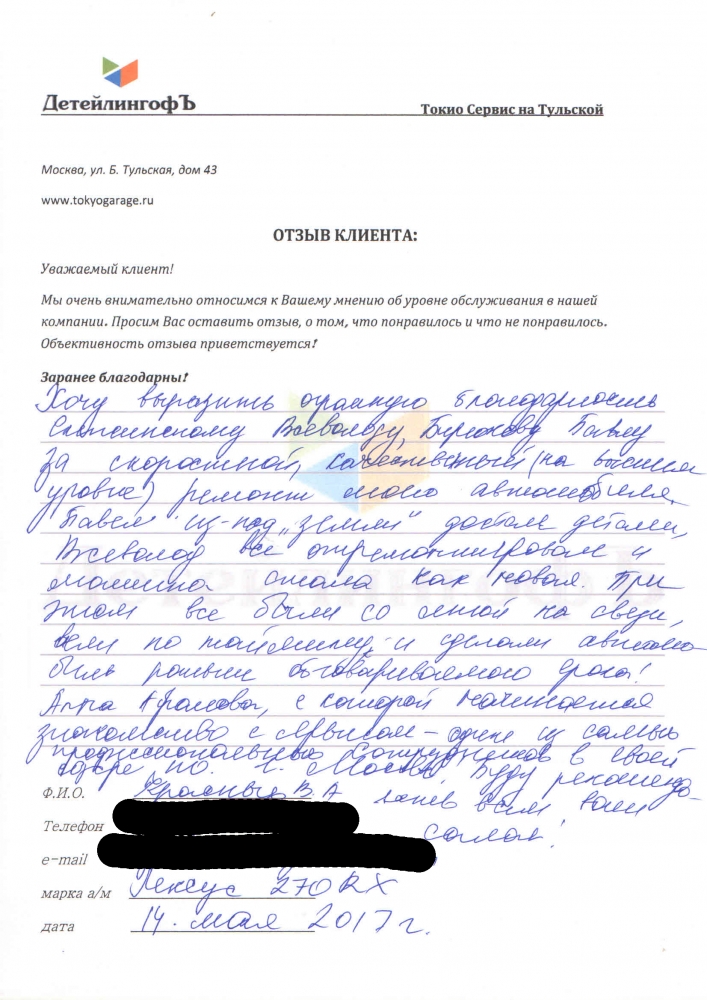 ДетейлингофЪ
Токио Сервис на Тульской
Москва, ул. Б. Тульская, дом 43
www.tokyogarage.ru
ОТЗЫВ КЛИЕНТА:
Уважаемый клиент!
Мы очень внимательно относимся к Вашему мнению об уровне обслуживания в нашей
компании. Просим Вас оставить отзыв, о том, что понравилось и что не понравилось.
Объективность отзыва приветствуется!
Заранее благодарны!
Хочу выразить огромную благодарность
Всеволоду, Бирюкову Павлу
за скоростной, качественный (на высшем
уровне) ремонт моего автомобиля.
Павел из-под „земли" достал детали,
Всеволод все отремонтировал и
машина стала как новая. При
этом все были со мной на связи,
вели по таймингу и сделали автомо
биль раньше обговариваемого срока!
Алла, с которой начинается
знакомство с сервисом - один из самых
профессиональных сотрудников в своей
сфере по г. Москвы. Буду рекомендо-
Ф.И.О. В.А всем ваш
Телефон салон!
e-mail
марка а/м Лексус 270 RX
дата 14. мая 2017 г.